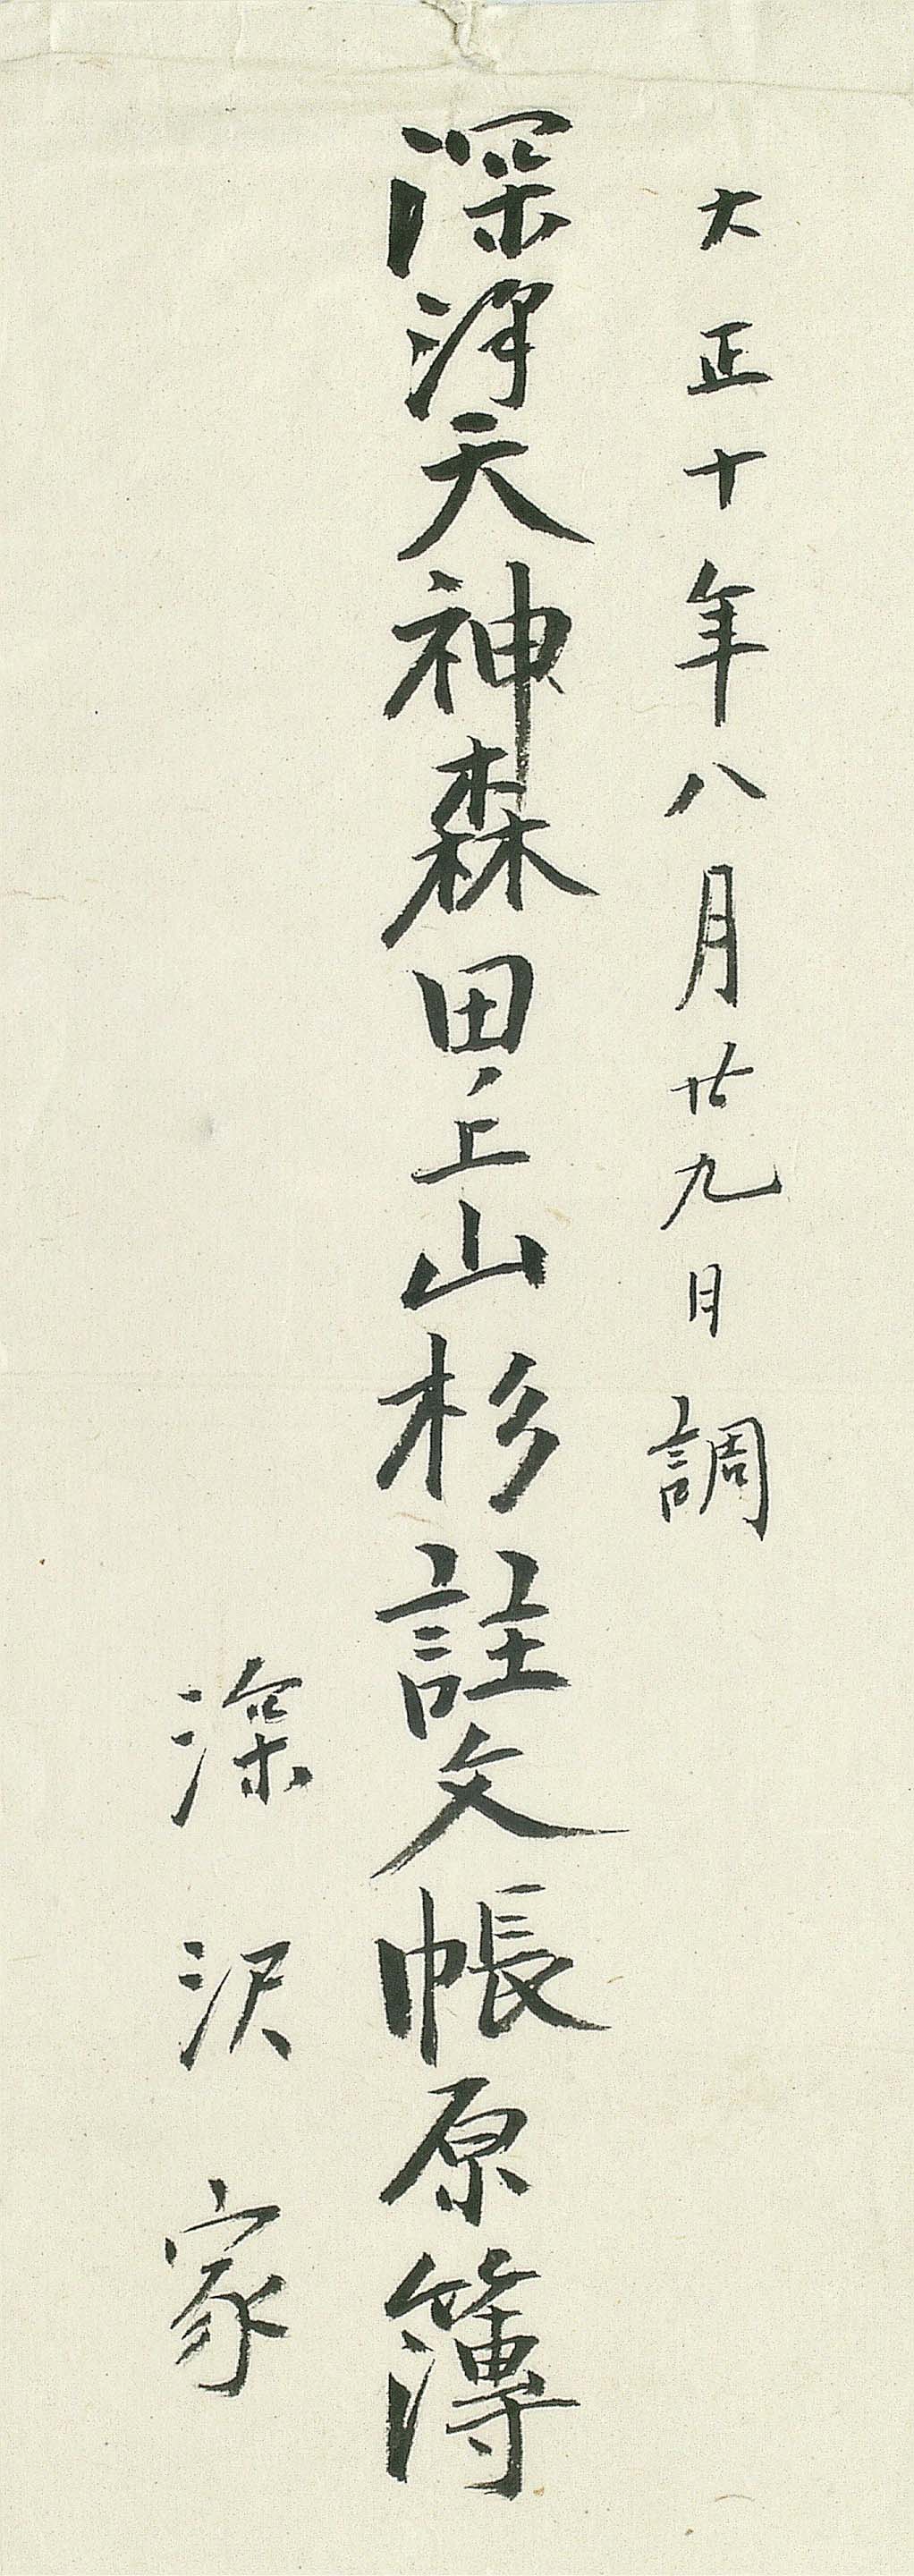 大正十年八月廿九日調
深澤天神森田ノ上山杉註文帳原簿
深沢家